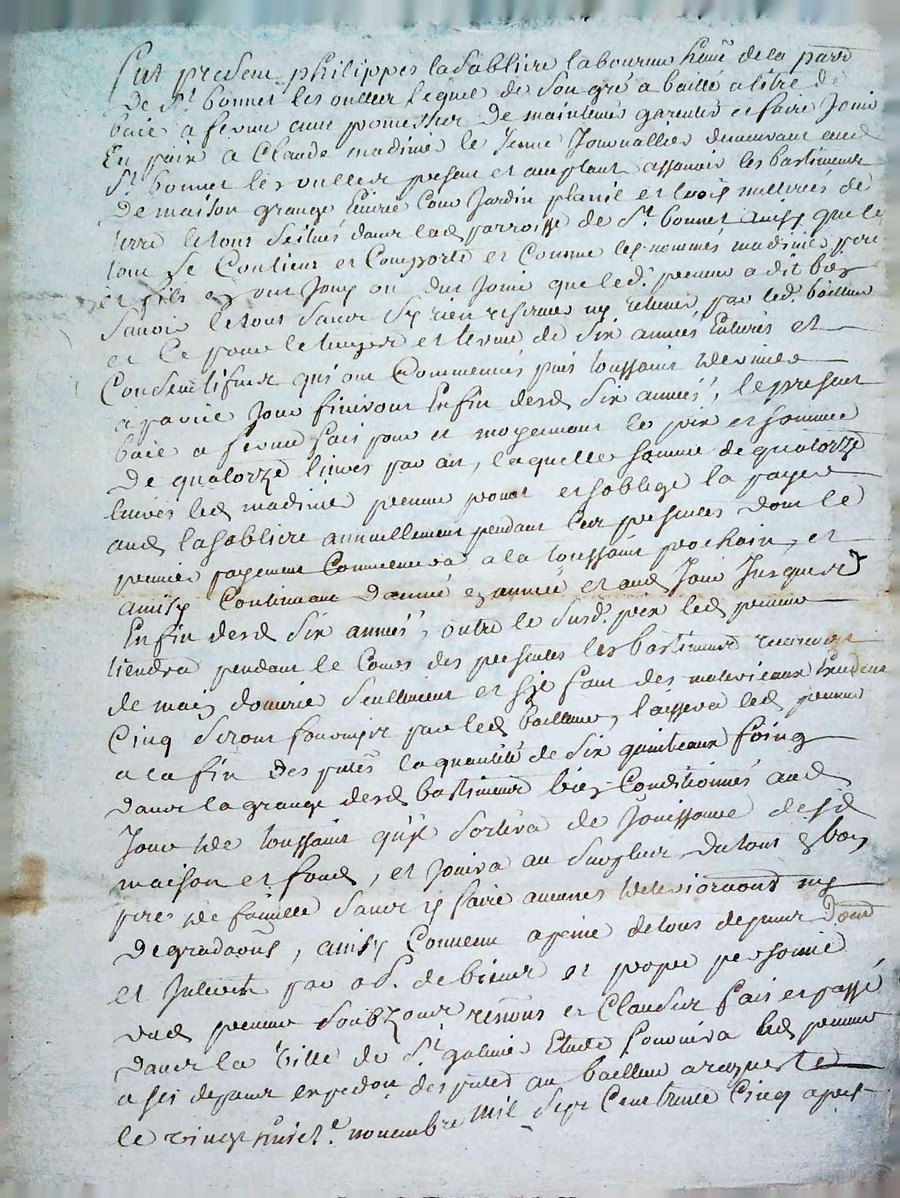 Fut present philippes lasabliere laboureur de la parr
De St bonnet les oulles lequel de son gré a baillé a titre de
baie a ferme avec promesse de maintenir garentir et faire Jouir
En paix a Claude madinie le Jeune Journallier demeurant aud
St bonnet les oulles present et acceptant assavoir les bastiments
De maison grange Cour Jardin et trois metterés de
terre le tout scitués dans lad parroisse de St bonnet ainsy que le
tout se Contient et Comporte et Comme les nommés madinie pere
et fils en ont Jouy ou dut Jouir que led. preneur a dit bien
Scavoir le tout sans sy rien reserver ny retenir par led. bailleur
et ce pour le temps et terme de six années Entieres et
Consecutifves qui ont Commencées puis toussaint dernier
a pareil Jour finiront Enfin desd six années, le present
baie a ferme fait pour et moyennant le prix et somme
De quatorze livres par an, laquelle somme de quatorze
livres led madinie preneur promet et soblige la payer
aud lasabliere annuellement pendant les presentes dont le
premier payement Commencera a la toussaint prochain, et
ainsy Continuer d'année en année et aud Jour Jusques
Enfin desd six années, outre le susd. prix led preneur
tiendra pendant le Cours des presentes les bastiments
de main d'ouvrie seullement et s'il faut des materieaux
Cinq seront par led bailleur, laissera led preneur
a la fin des pntes la quantité de six quinteaux foing
dans la grange desd bastiments bien Conditionnés aud
Jour de toussaint qu'il sortira de Jouissance desd
maison et fond, et Jouira au surplus du tout en bon
pere de famille sans y faire aucunes deteriora͠ons ny
Degrada͠ons, ainsy Convenu a peine de tous depens
et Interets par obl. de biens et propre personne
dud preneur soubz renons et Clauses fait et passé
dans la ville de St galmier Etude fournira led preneur
a ses depans expedon des pntes au bailleur a requeste
le vingt huict. novembre mil sept Cent trente Cinq apres